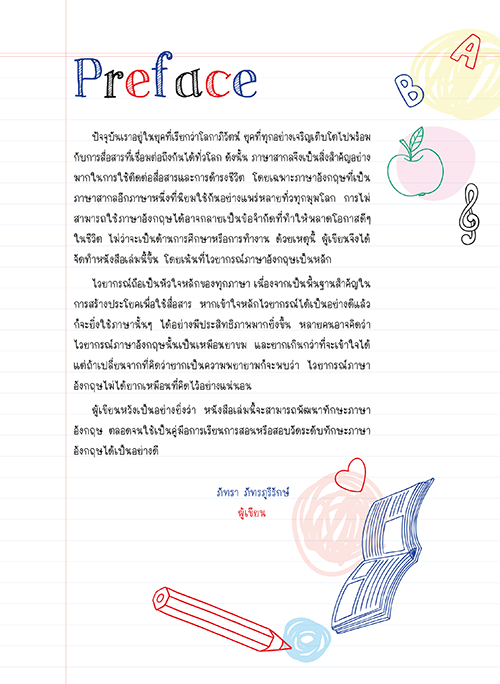 A
B
Preface
ปัจจุบันเราอยู่ในยุคที่เรียกว่าโลกาภิวัตน์ ยุคที่ทุกอย่างเจริญเติบโตไปพร้อม
กับการสื่อสารที่เชื่อมต่อถึงกันได้ทั่วโลก ดังนั้น ภาษาสากลจึงเป็นสิ่งสำคัญอย่าง
มากในการใช้ติดต่อสื่อสารและการดำรงชีวิต โดยเฉพาะภาษาอังกฤษที่เป็น
ภาษาสากลอีกภาษาหนึ่งที่นิยมใช้กันอย่างแพร่หลายทั่วทุกมุมโลก การไม่
สามารถใช้ภาษาอังกฤษได้อาจกลายเป็นข้อจำกัดที่ทำให้พลาดโอกาสดีๆ
ในชีวิต ไม่ว่าจะเป็นด้านการศึกษาหรือการทำงาน ด้วยเหตุนี้ ผู้เขียนจึงได้
จัดทำหนังสือเล่มนี้ขึ้น โดยเน้นที่ไวยากรณ์ภาษาอังกฤษเป็นหลัก
ไวยากรณ์ถือเป็นหัวใจหลักของทุกภาษา เนื่องจากเป็นพื้นฐานสำคัญใน
การสร้างประโยคเพื่อใช้สื่อสาร หากเข้าใจหลักไวยากรณ์ได้เป็นอย่างดีแล้ว
ก็จะยิ่งใช้ภาษานั้นๆ ได้อย่างมีประสิทธิภาพมากยิ่งขึ้น หลายคนอาจคิดว่า
ไวยากรณ์ภาษาอังกฤษนั้นเป็นเหมือนยาขม และยากเกินกว่าที่จะเข้าใจได้
แต่ถ้าเปลี่ยนจากที่คิดว่ายากเป็นความพยายามก็จะพบว่า ไวยากรณ์ภาษา
อังกฤษไม่ได้ยากเหมือนที่คิดไว้อย่างแน่นอน
ผู้เขียนหวังเป็นอย่างยิ่งว่า หนังสือเล่มนี้จะสามารถพัฒนาทักษะภาษา
อังกฤษ ตลอดจนใช้เป็นคู่มือการเรียนการสอนหรือสอบวัดระดับทักษะภาษา
อังกฤษได้เป็นอย่างดี
ภัทรา ภัทรภูริรักษ์
ผู้เขียน